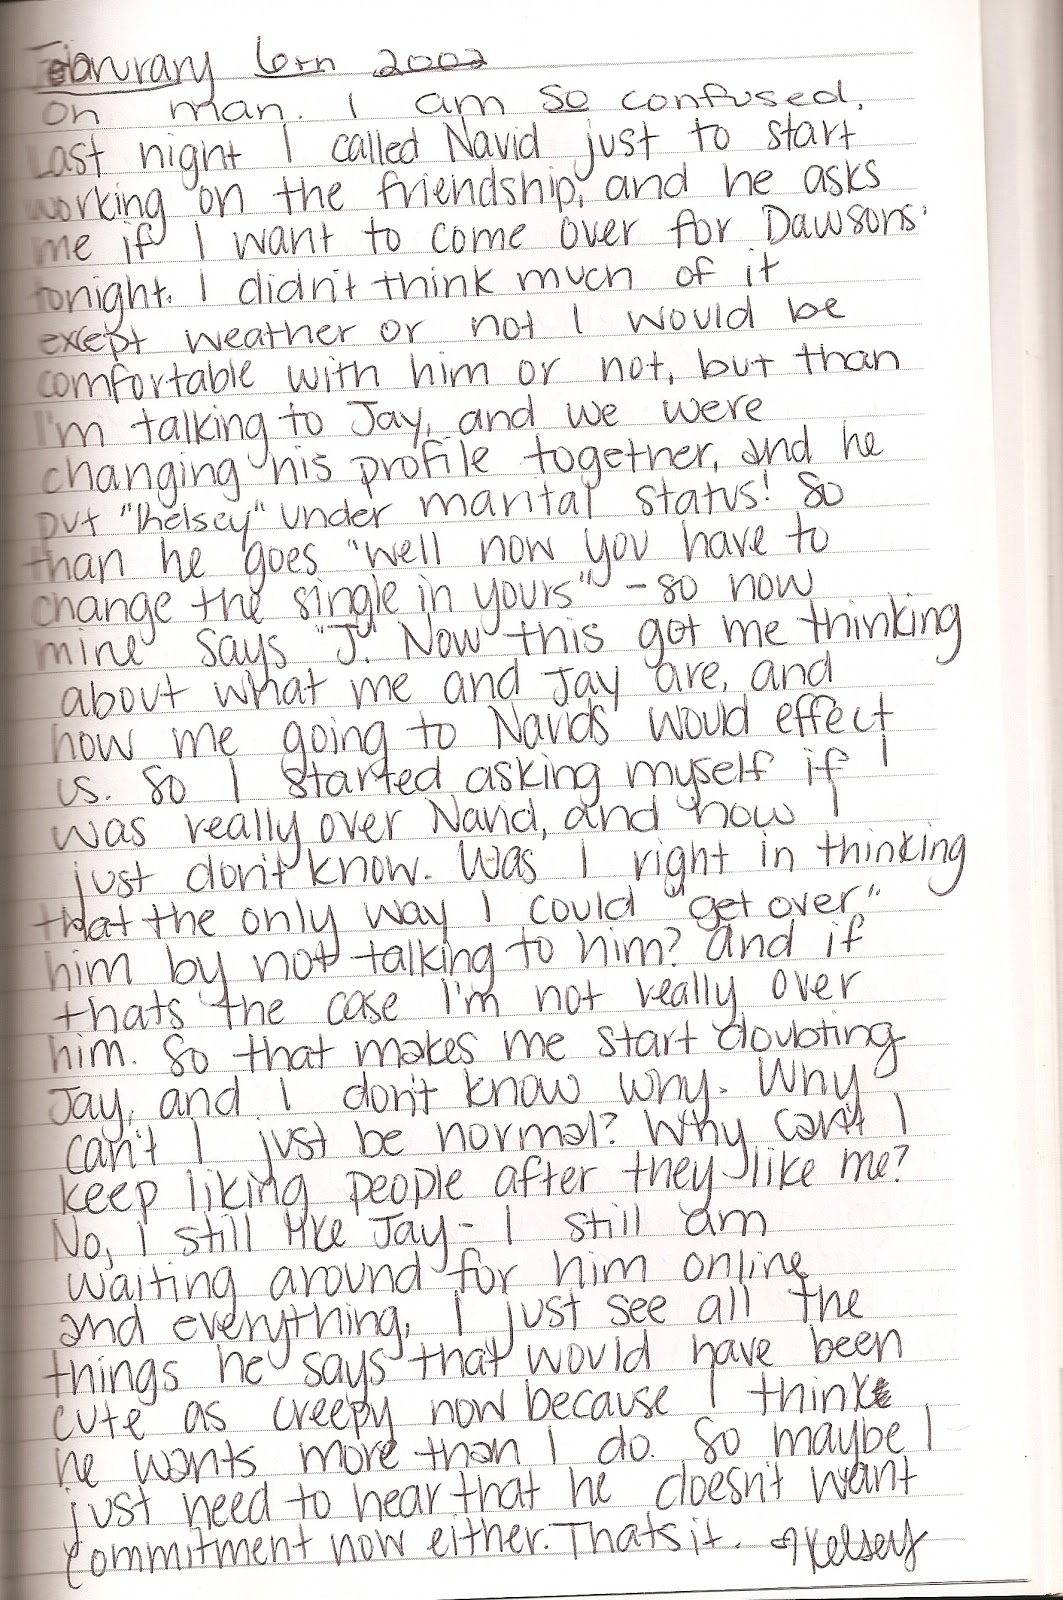 Janurary 6th 2002
Oh man. I am so confused.
Last night I called Navid just to start
working on the friendship, and he asks
me if I want to come over for Dawsons'
tonight. I didn't think much of it
except weather or not I would be
comfortable with him or not, but than
I'm talking to Jay, and we were
changing his profile together, and he
put "Kelsey" under marital status! So
than he goes "well now you have to
change the single in yours" - so now
mine says "J." Now this got me thinking
about what me and Jay are, and
how me going to Navids would effect
us. So I started asking myself if I
was really over Navid, and now I
just don't know. Was I right in thinking
that the only way I could "get over"
him by not talking to him? And if
thats the case I'm not really over
him. So that makes me start doubting
Jay, and I don't know why. Why
can't I just be normal? Why can't I
keep liking people after they like me?
No, I still like Jay - I still am
waiting around for him online
and everything, I just see all the
things he says that would have been
cute as creepy now because I think
he wants more than I do. So maybe I
just need to hear that he doesn't want
commitment now either. Thats it. Kelsey